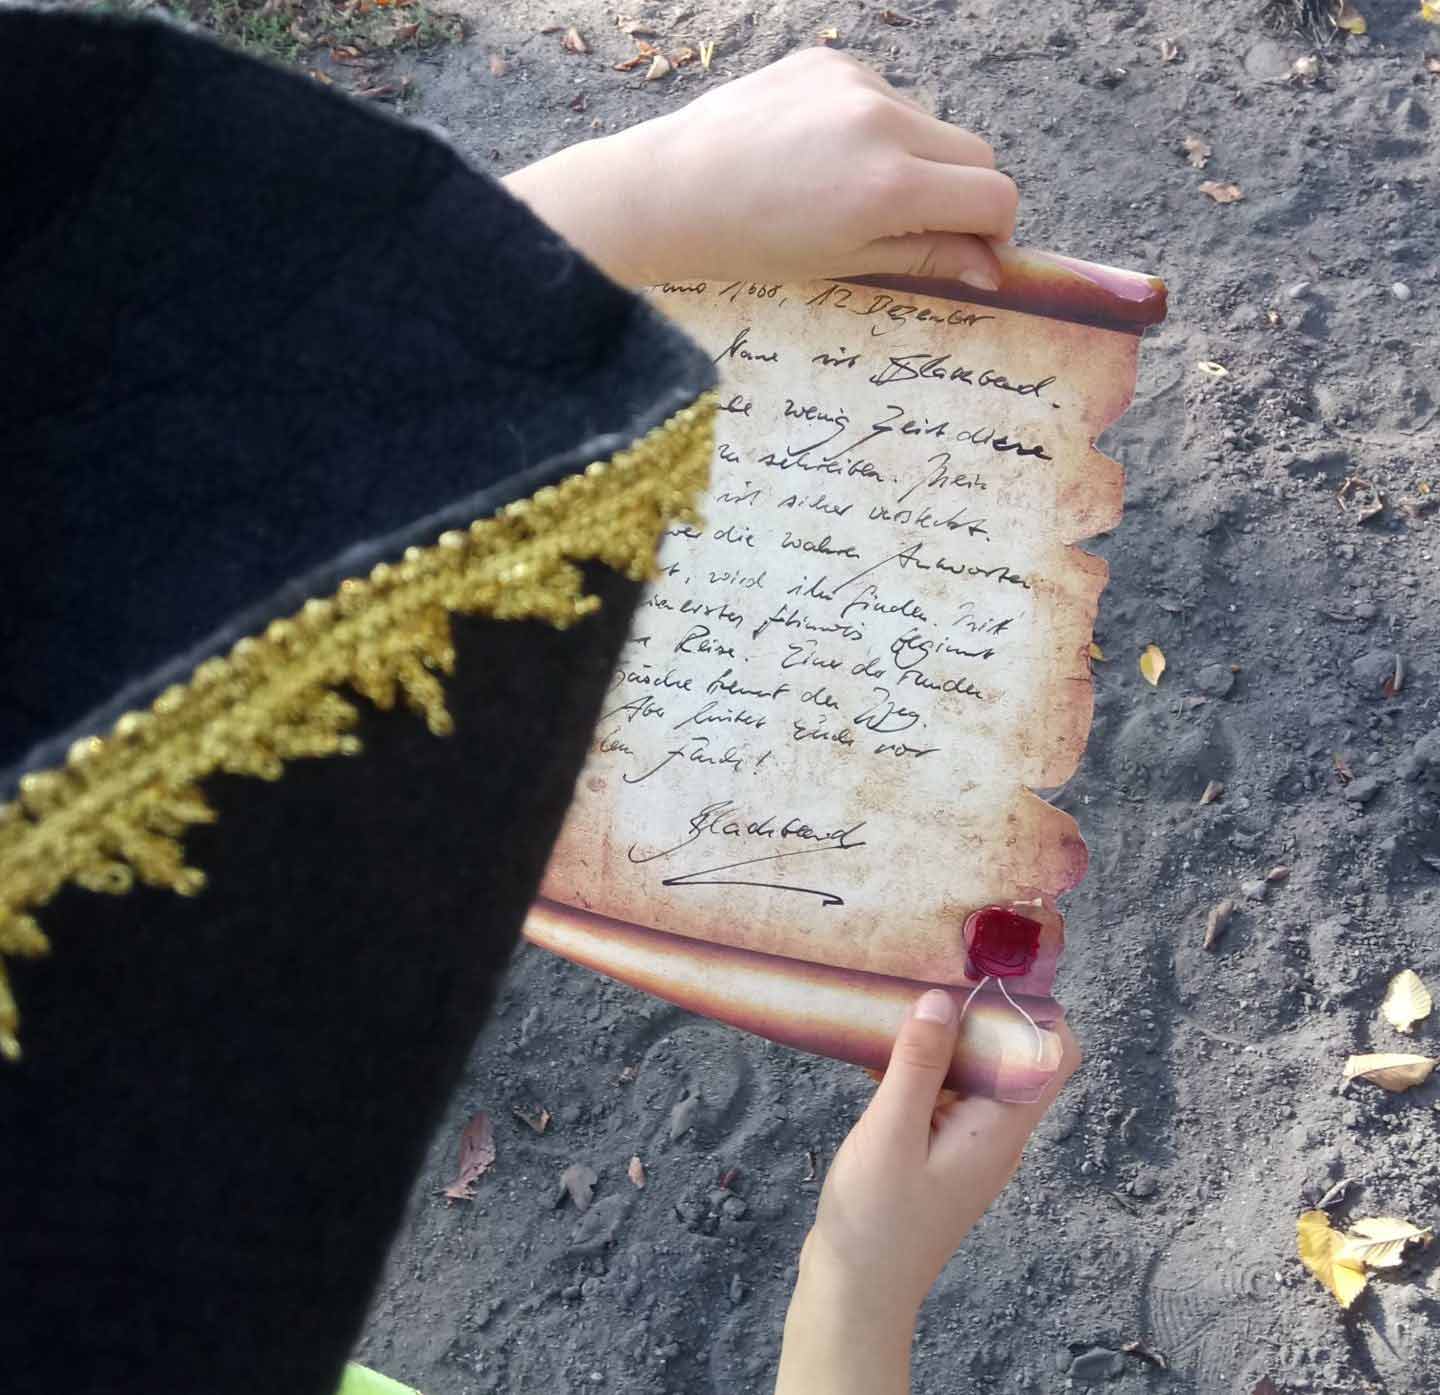 12 Dezember
Name ist Blackbeard.
wenig Zeit diese
zu schreiben. Mein
ist sicher versteckt.
wer die wahren Antworten
wird ihn finden. Mit
erster Hinweis beginnt
Reise. Einer der Runden
trennt den Weg.
Aber hütet Euch vor
dem Fluch!
Blackbeard